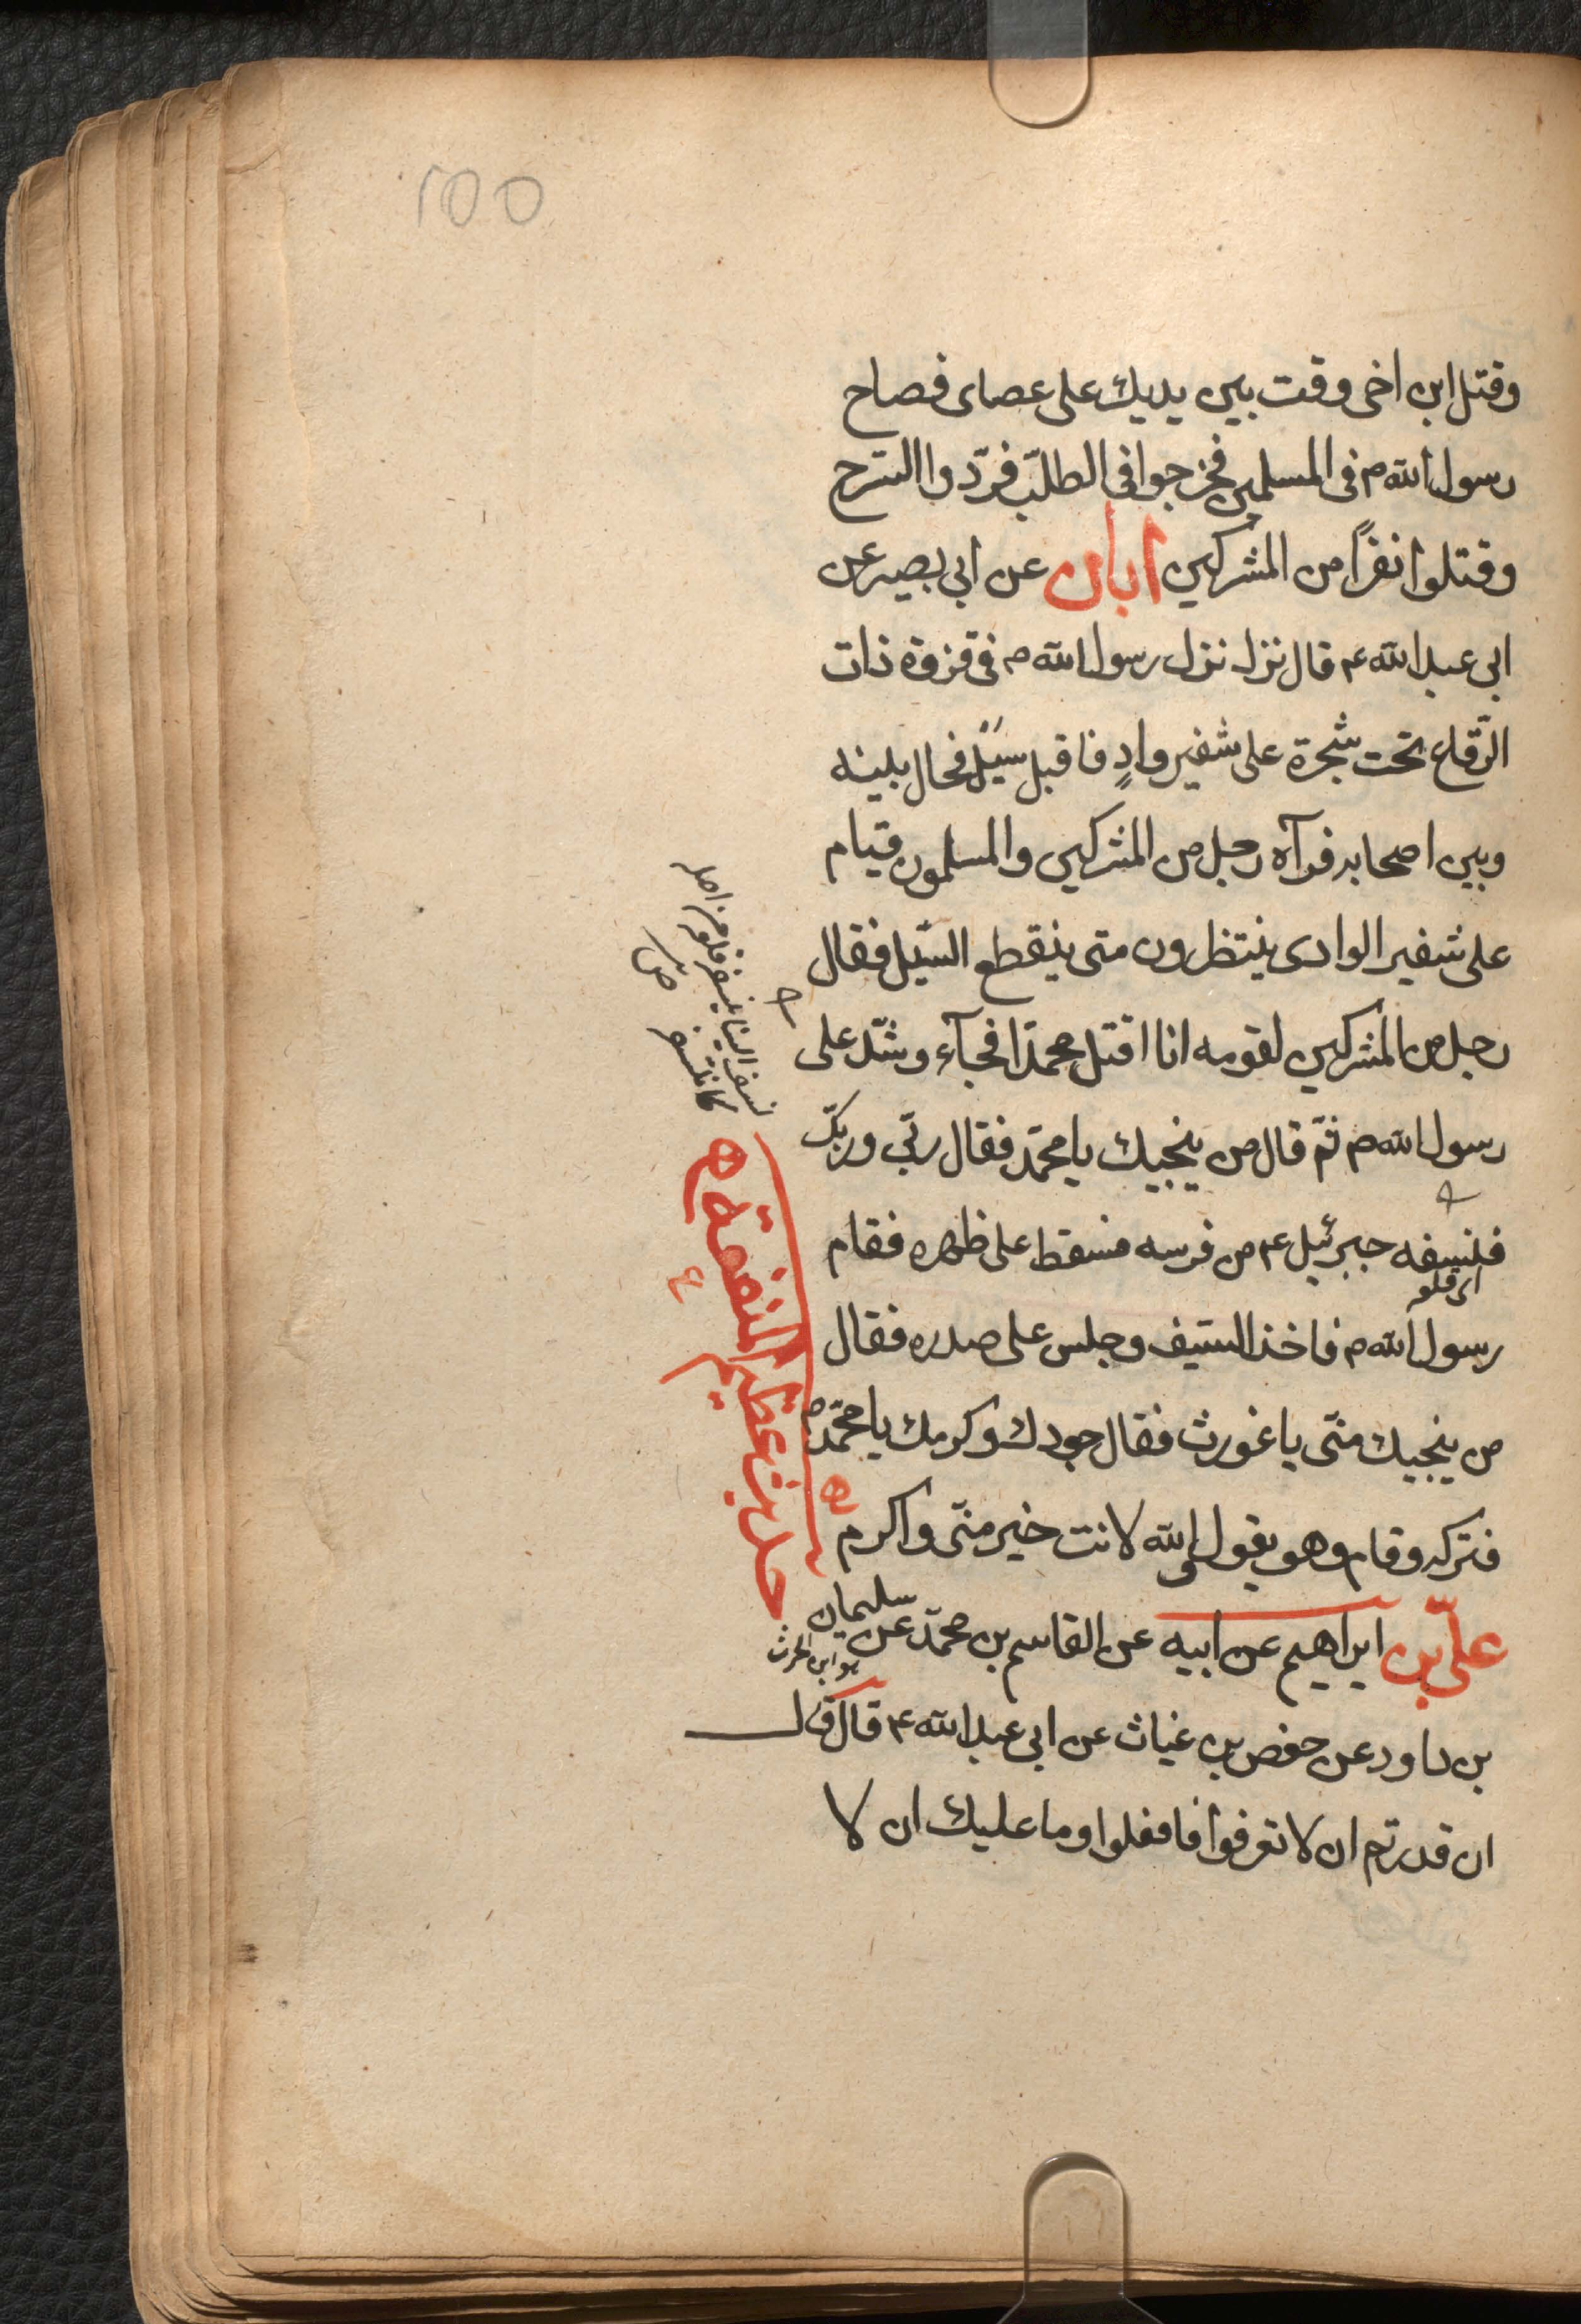 100
وقتل ابن اخى وقت بين يديك على عصاى فصاح
رسول الله م فى المسلمين فخرجوا فى الطلب فردّوا السرح
وقتلوا نفرًا من المشركين ابان عن ابى بصير عن
ابى عبد الله ع قال نزل نزل رسول الله م فى غزوة ذات
الرّقاع تحت شجرة على شفير وادٍ فاقبل سيل فحال بينه
وبين اصحابه فرآه رجل من المشركين والمسلمون قيام
على شفير الوادى ينتظرون متى ينقطع السّيل فقال
رجل من المشركين لقومه انا اقتل محمدًا فجآء وشدّ على
رسول الله م ثمّ قال من ينجيك يا محمّد فقال ربّى وربّك
فنسفه جبرئيل ع من فرسه فسقط على ظهره فقام
اى قلعه
رسول الله م فاخذ السّيف وجلس على صدره فقال
من ينجيك منّى يا غورث فقال جودك وكرمك يا محمّد م
فتركه وقام وهو يقول والله لانت خير منّى واكرم
علىّ بن ابراهيم عن ابيه عن القاسم بن محمّد عن سليمان
هو ابن الحرث
بن داود عن حفص بن غياث عن ابى عبد الله ع قال قال
ان قدرتم ان لا تعرفوا فافعلوا وما عليك ان لا
نسف البنا ينسفه قلعه من اصله
كانتسفه
حديث عظيم المنفعة